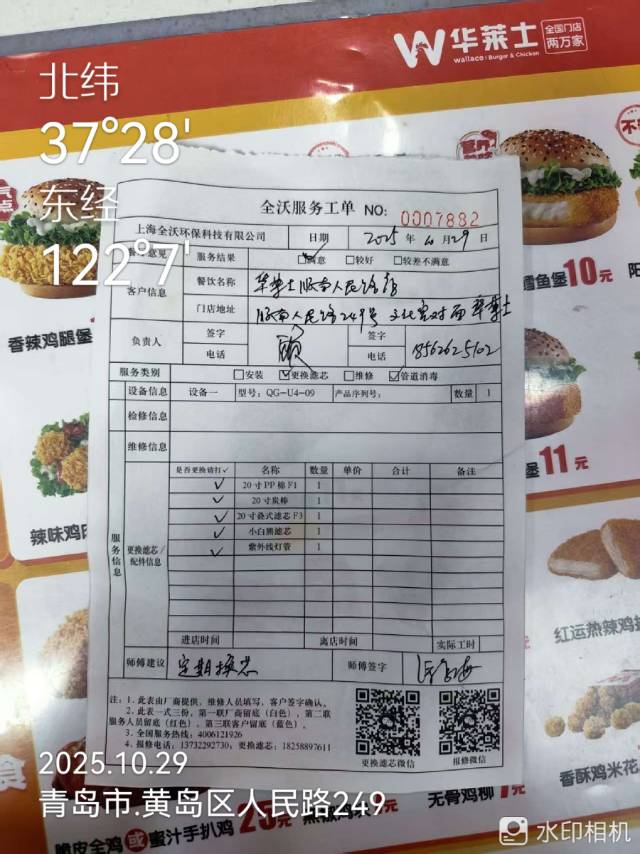 华莱士
全国门店
两万家
wallace | Burger & Chicken
北纬
37°28'
东经
122°7'
全沃服务工单 NO: 0007882
上海全沃环保科技有限公司 日期 2025年10月29日
服务结果 满意 较好 较差不满意
客户信息
餐饮名称 华莱士 人民路
门店地址 人民路249号 对面华莱士
负责人 签字 签字
电话 电话 18562625102
服务类别 安装 更换滤芯 维修 管道消毒
设备信息 设备一 型号: QG-U4-09 产品序列号: 数量 1
检修信息
维修信息
服务信息
更换滤芯/配件信息
是否更换请打✓ 名称 数量 单价 合计 备注
✓ 20寸PP棉F1 1
✓ 20寸炭棒 1
✓ 20寸叠式滤芯F3 1
✓ 小白熊滤芯 1
✓ 紫外线灯管 1
进店时间 离店时间 实际工时
师傅建议 定期换芯 师傅签字
注: 1.此表由厂商提供, 维修人员填写, 客户签字确认。
2.此表一式三份, 第一联厂商留底(白色), 第二联
服务人员留底(红色), 第三联客户留底(蓝色)。
3.全国服务热线: 4006121926
4.报修电话: 13732292730, 更换滤芯: 18258897611
更换滤芯微信 维修微信
香辣鸡腿堡
鳕鱼堡10元
堡11元
辣味鸡
红运热辣鸡
香酥鸡米花
无骨鸡柳
脆皮全鸡或蜜汁手扒鸡
2025.10.29
青岛市.黄岛区人民路249
水印相机